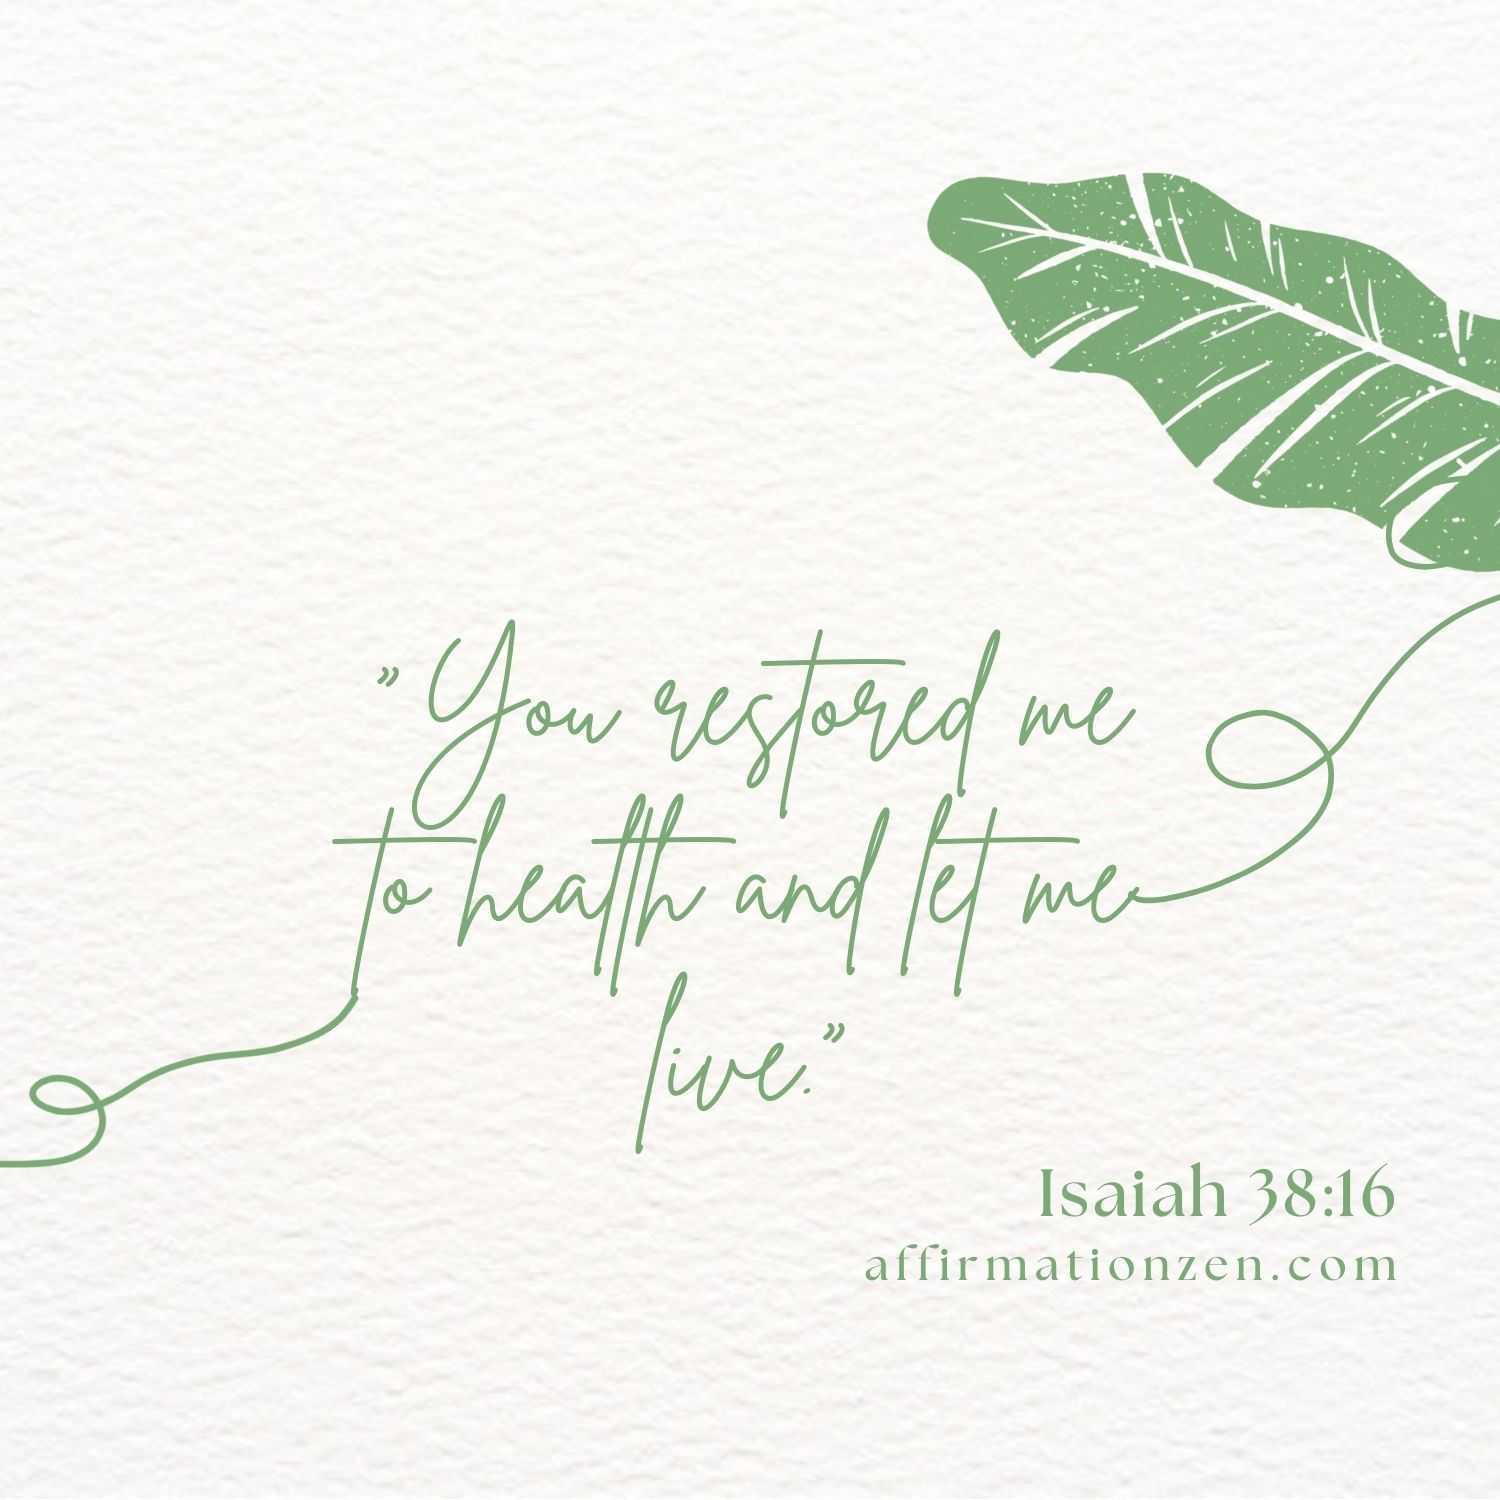 ”You restored me
to health and let me
live.”
Isaiah 38:16
affirmationzen.com